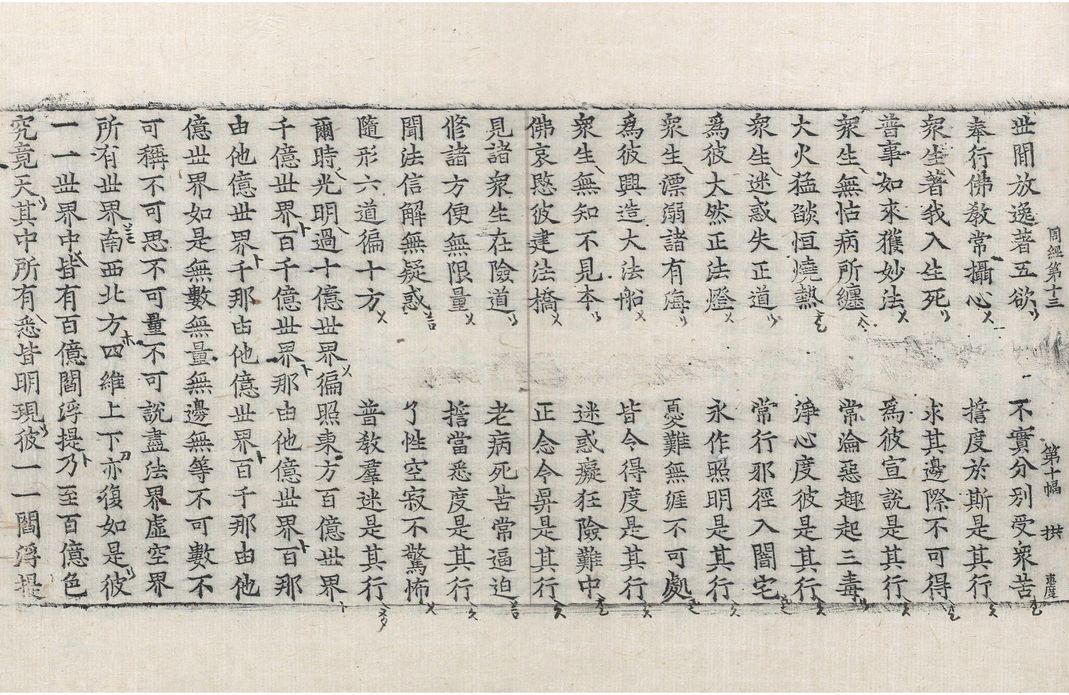 周經第十三　第十幅　拱　惠度
世間放逸著五欲　不實分別受衆苦
奉行佛教常攝心　誓度於斯是其行
衆生著我入生死　求其邊際不可得
普事如來獲妙法　爲彼宣說是其行
衆生無怙病所纏　常淪惡趣起三毒
大火猛燄恒燒熱　淨心度彼是其行
衆生迷惑失正道　常行邪徑入闇宅
爲彼大然正法燈　永作照明是其行
衆生漂溺諸有海　憂難無涯不可處
爲彼興造大法船　皆令得度是其行
衆生無知不見本　迷惑癡狂險難中
佛哀愍彼建法橋　正念令昇是其行
見諸衆生在險道　老病死苦常逼迫
修諸方便無限量　誓當悉度是其行
聞法信解無疑惑　了性空寂不驚怖
隨形六道徧十方　普教羣迷是其行
爾時光明過十億世界徧照東方百億世界
千億世界百千億世界那由他億世界百那
由他億世界千那由他億世界百千那由他
億世界如是無數無量無邊無等不可數不
可稱不可思不可量不可說盡法界虛空界
所有世界南西北方四維上下亦復如是彼
一一世界中皆有百億閻浮提乃至百億色
究竟天其中所有悉皆明現彼一一閻浮提